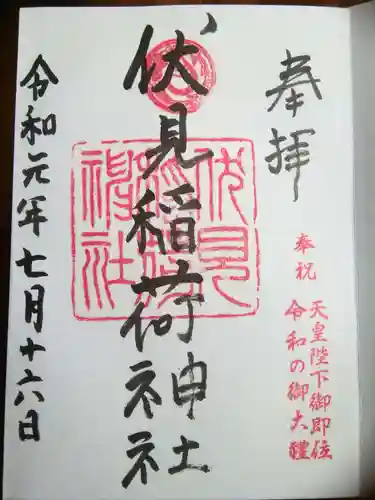 奉拝
奉祝 天皇陛下御即位
令和の御大禮
伏見稲荷神社
伏見稲荷神社
令和元年七月十六日